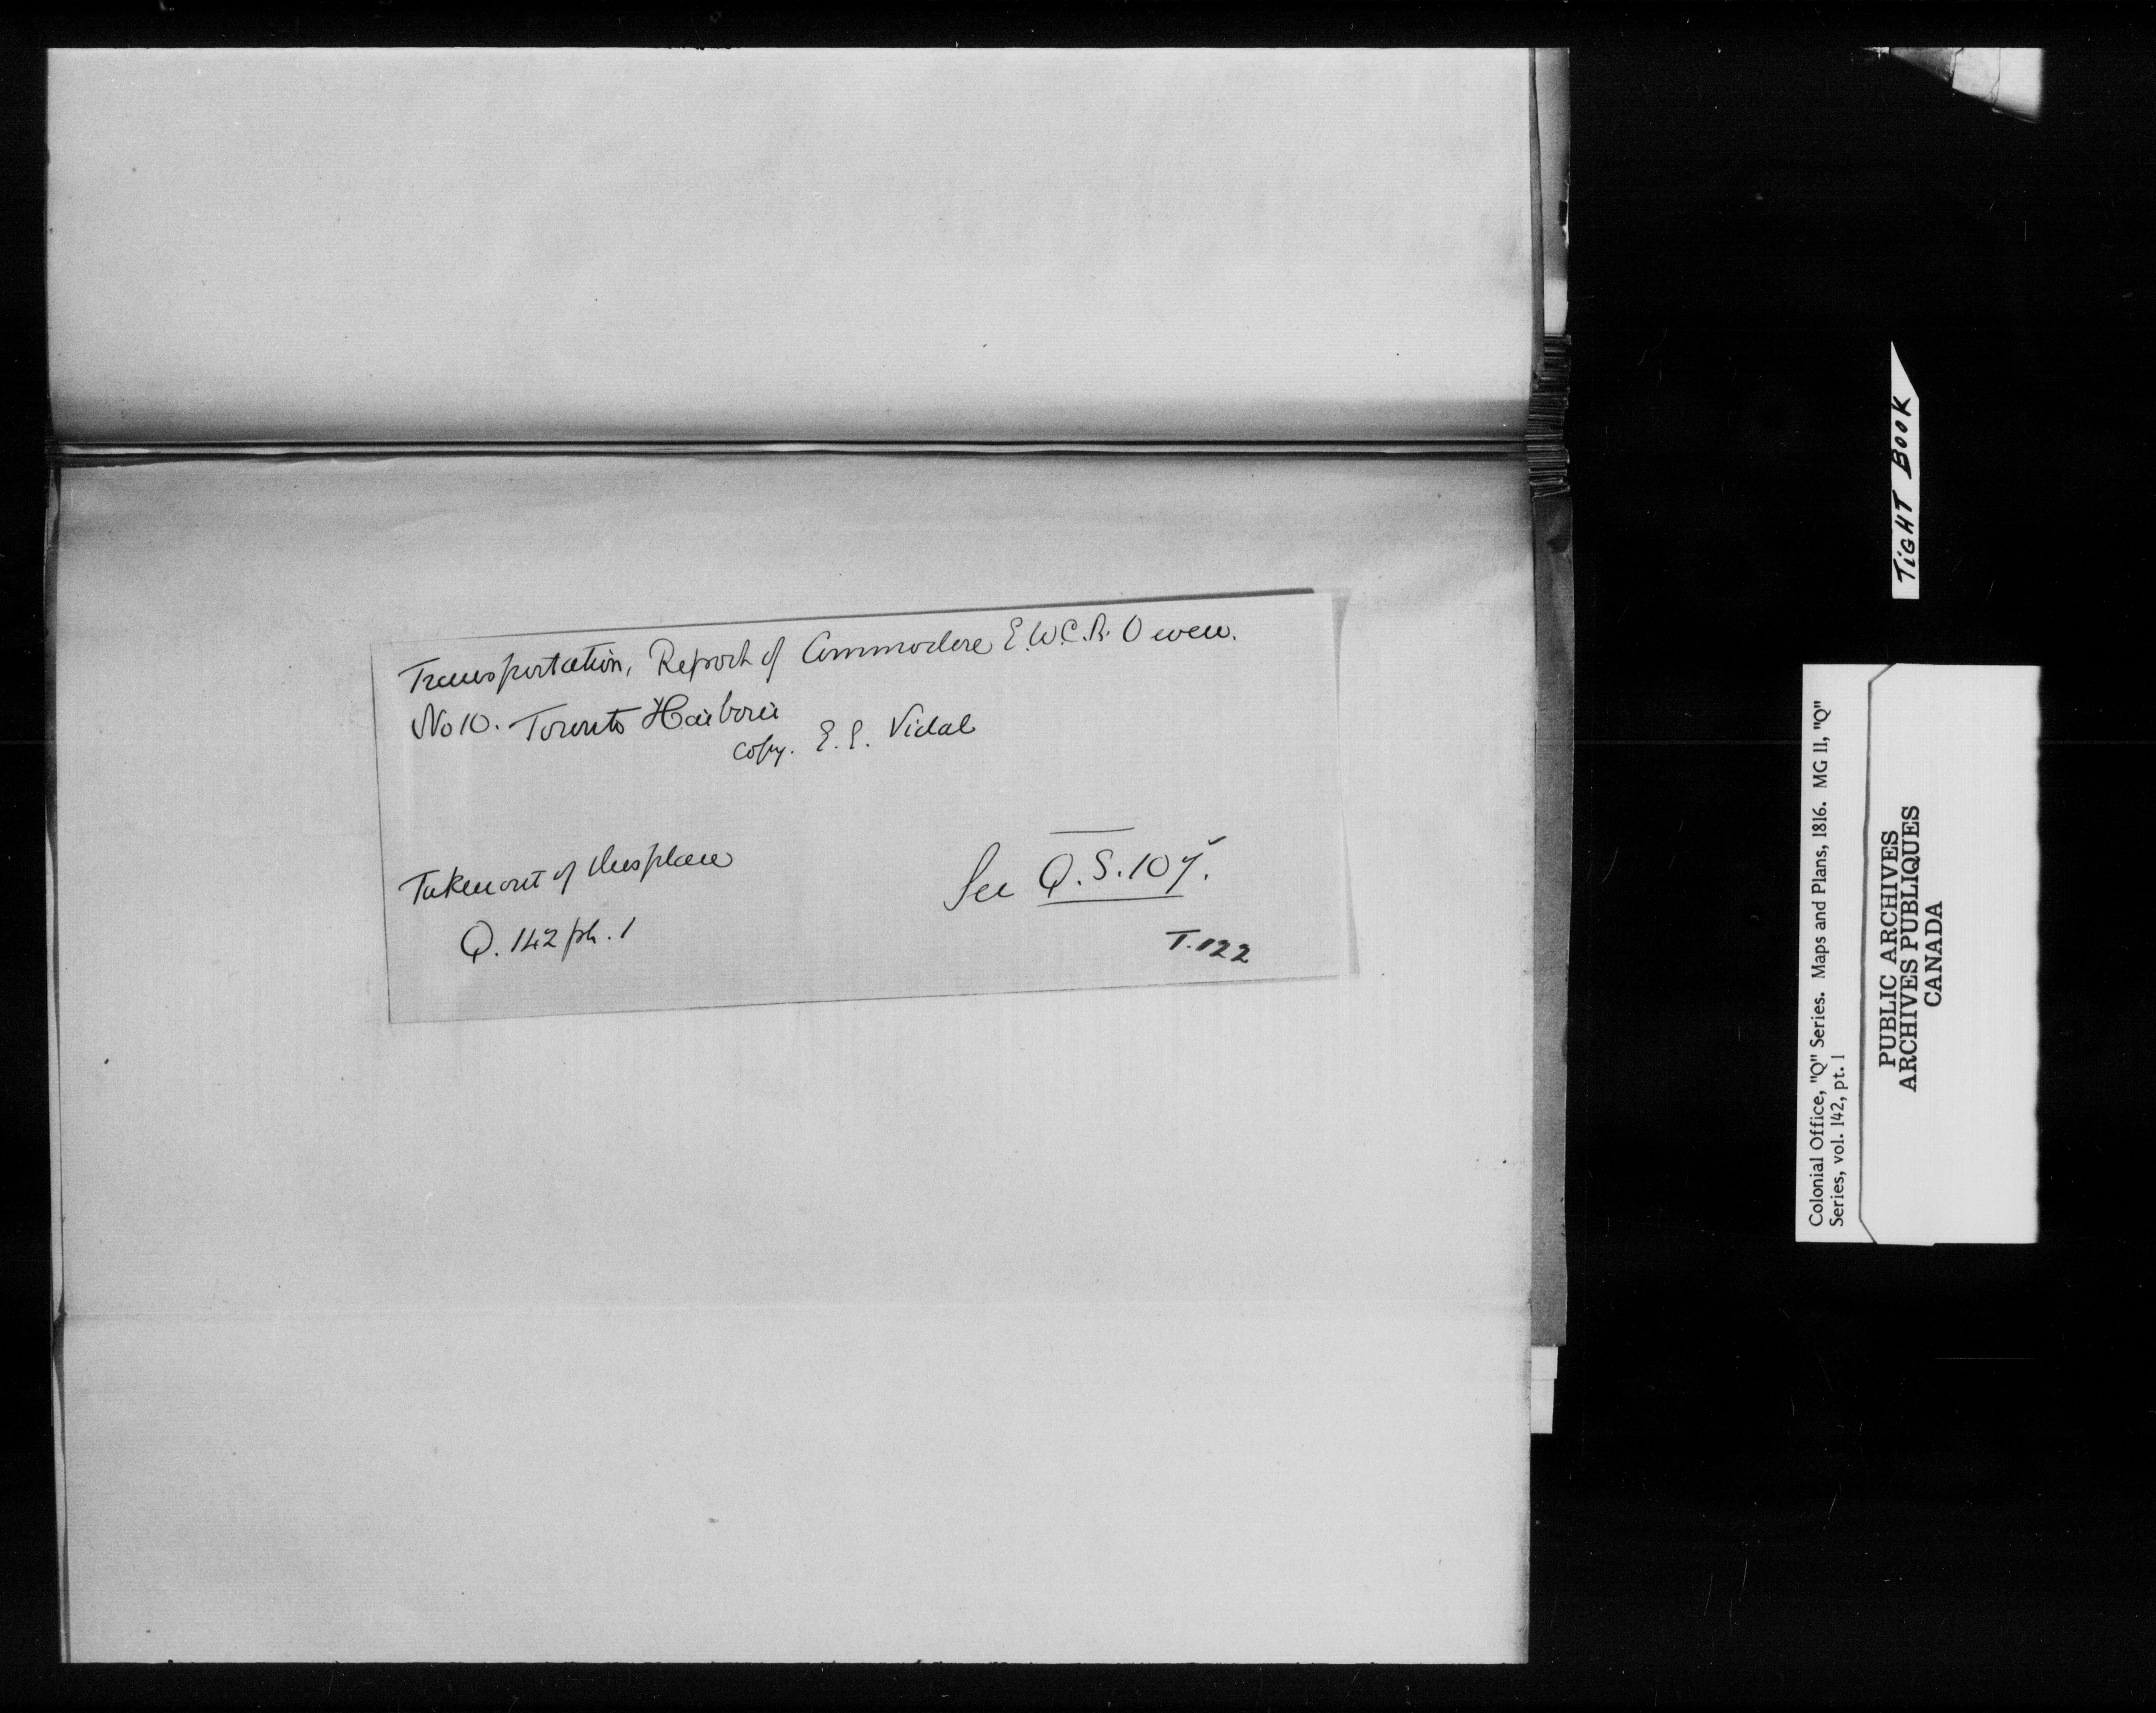 Transportation, Report of Commodore E.W.C.R. Owen.
No 10. Toronto Harbour
copy. E.E. Vidal
Taken out of this place
Q. 142 pt. 1
See Q.S. 107.
T.122
TIGHT BOOK
Colonial Office, "Q" Series. Maps and Plans, 1816. MG 11, "Q"
Series, vol. 142, pt. 1
PUBLIC ARCHIVES
ARCHIVES PUBLIQUES
CANADA